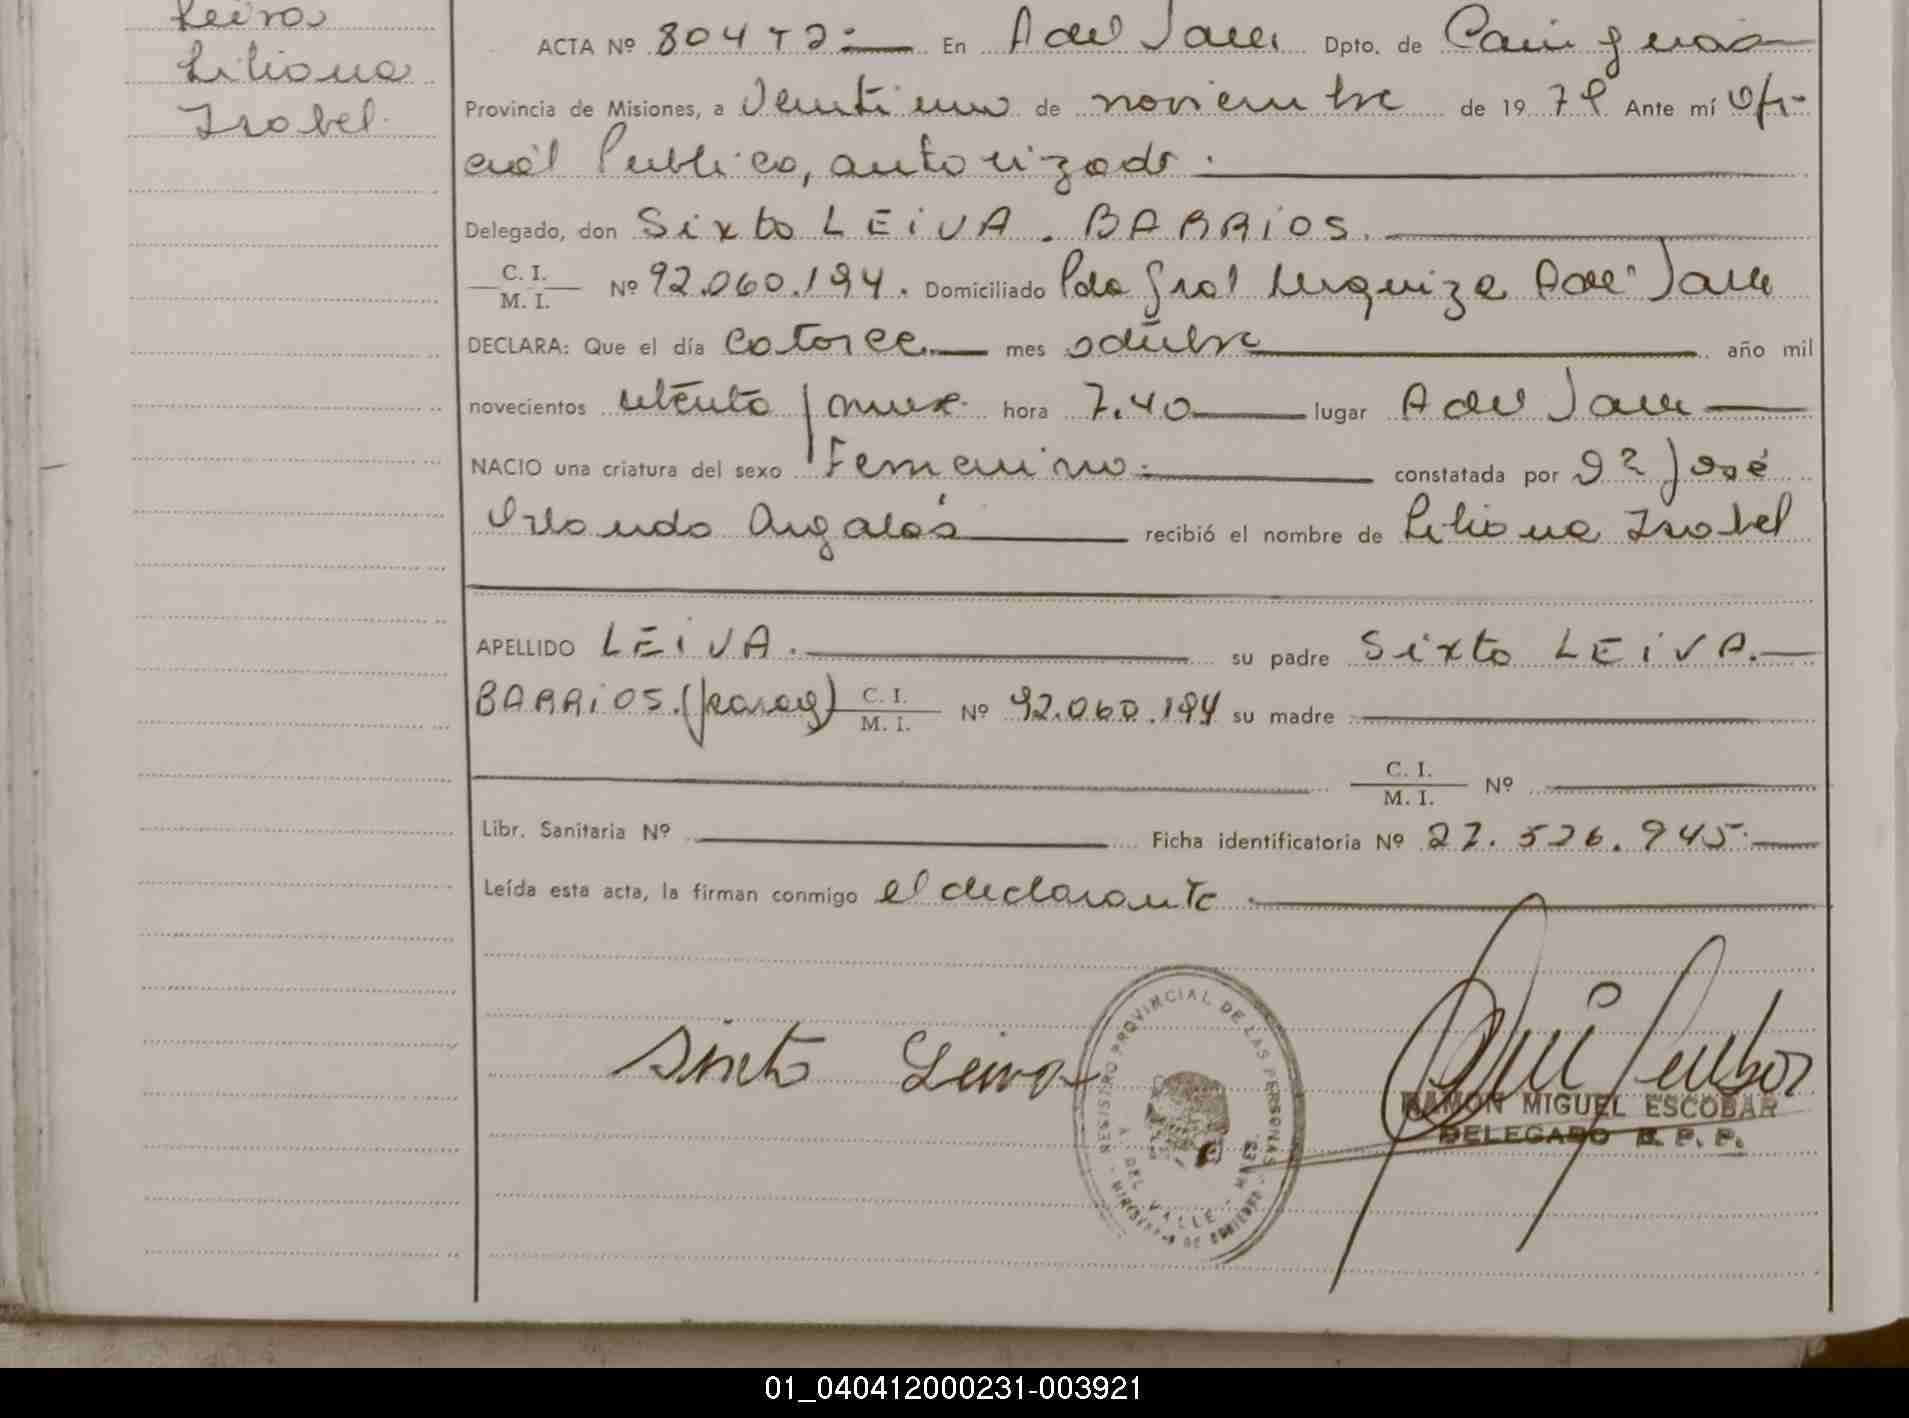 Leiva
Liliana
Isabel
ACTA Nº 804 T 2 En A del Valle Dpto. de Cainguás
Provincia de Misiones, a Veintiuno de noviembre de 1979 Ante mí Ofi-
cial Publico, autorizado.
Delegado, don Sixto LEiVA. BARRiOS.
C. I. / M. I. Nº 92.060.194. Domiciliado Pdo Gral Urquiza A del Valle
DECLARA: Que el día catorce mes octubre año mil
novecientos setenta y nueve hora 7.40 lugar A del Valle
NACIO una criatura del sexo Femenino. constatada por Dr José
Orlando recibió el nombre de Liliana Isabel
APELLIDO LEiVA. su padre Sixto LEiVA.
BARRiOS. (parag) C. I. / M. I. Nº 92.060.194 su madre
C. I. / M. I. Nº
Libr. Sanitaria Nº Ficha identificatoria Nº 27.526.945
Leída esta acta, la firman conmigo el declarante.
Sixto Leiva
REGISTRO PROVINCIAL DE LAS PERSONAS
A. DEL VALLE - MNES.
RAMON MIGUEL ESCOBAR
DELEGADO R. P. P.
01_040412000231-003921